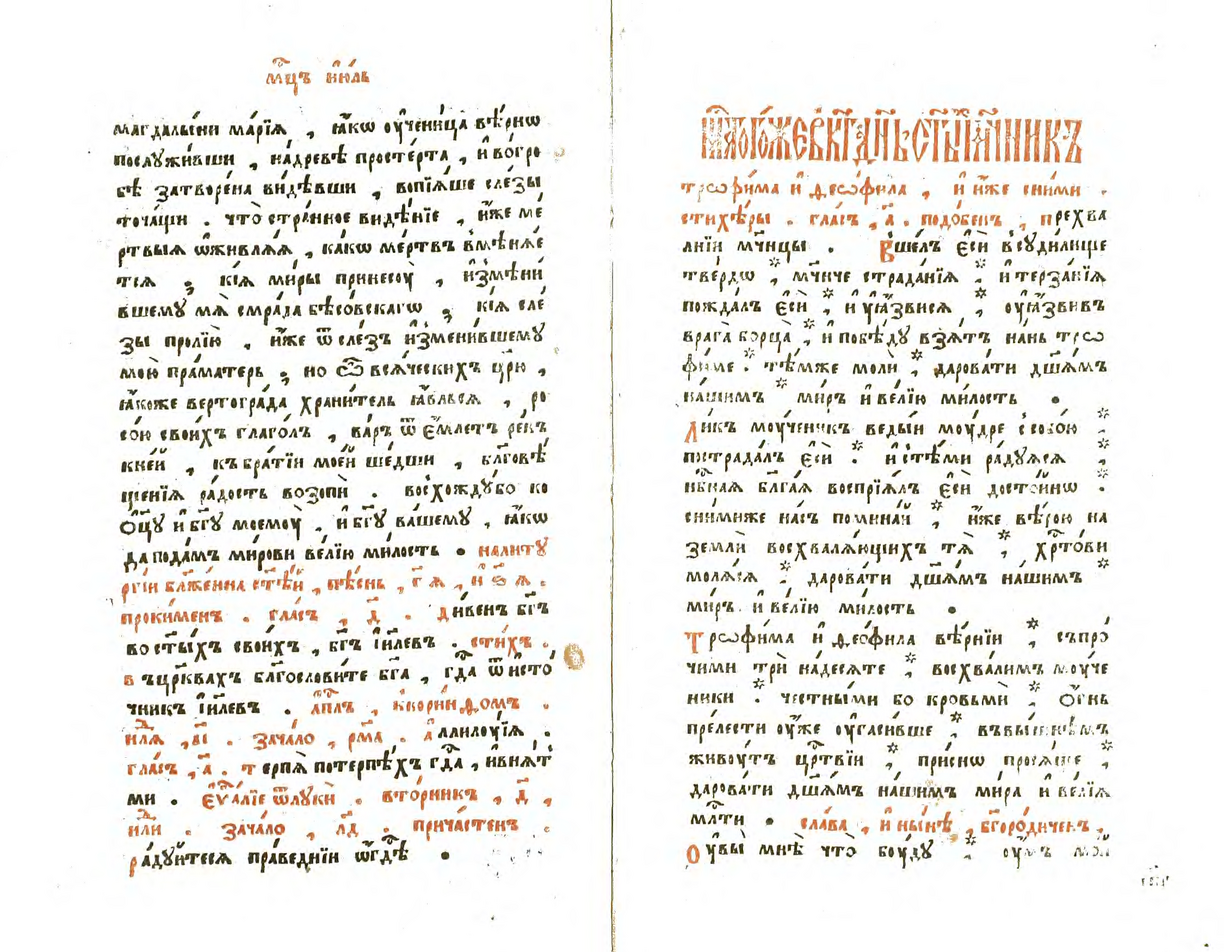 мц҃ъ ию́ль
магдалы́ни марі́я , ꙗ́кѡ ѹ҆чени́ца вѣ́рнѡ
послꙋжи́вши , на́древѣ просте́рта , и҆ вогро
бѣ затворе́на ви́дѣвши , вопїѧ́ше сле́зы
точа́щи . что̀ стра́нное видѣ́нїе , и҆́же ме́
ртвыѧ ѡ҆живлѧ́ѧ , ка́кѡ ме́ртвъ вмѣнѧ́е
тсѧ ; кі́ѧ ми́ры принесоу̀ , и҆змѣни́
вшемꙋ мѧ̀ смра́да бѣсо́вскагѡ ; кі́ѧ сле́
зы пролїю̀ , и҆́же ѿ сле́зъ и҆змени́вшемꙋ
мою̀ пра́матерь ; но ѽ всѧ́ческихъ цр҃ю̀ ,
ꙗ҆́коже вертогра́да храни́тель ꙗ҆ви́льсѧ , ро
со́ю свои́хъ глаго́лъ , ва́ръ ѿ е҆́млетъ ре́къ
кне́й , къ бра́тїи мое́й ше́дши , бл҃говѣ
щенїѧ ра́дость возопѝ . восхождꙋ́бо ко
ѻ҆ц҃ꙋ̀ и҆ бг҃ꙋ моемоу̀ , и҆ бг҃ꙋ ва́шемꙋ , ꙗ҆́кѡ
да пода́мъ ми́рови ве́лїю ми́лость . налитꙋ
ргі́и бл҃же́нна ст҃ѣ́й , пѣ́снь , г҃ ѧ , и҆ ѕ҃ ѧ .
проки́менъ . гла́съ , д҃ . ди́венъ бг҃ъ
во ст҃ы́хъ свои́хъ , бг҃ъ і҆и҃левъ . сти́хъ .
въ цр҃квахъ благослови́те бг҃а , гд҃а ѿ исто́
чникъ і҆и҃левъ . а҆пл҃ъ , ккори́нѳомъ .
илѧ , в҃і . зача́ло , рм҃а . а҆ллилоу́їѧ .
гла́съ , а҃ . терпѧ̀ потерпѣ́хъ гд҃а , и҆внѧ́т
ми . є҆ѵа҃лїе ѿлꙋкѝ . вто́рникъ , д҃ ,
илѝ . зача́ло , л҃д . прича́стенъ .
ра́дꙋйтесѧ пра́веднїи ѡ҆гд҃ѣ .
тогѡ́же в҃кг дн҃ь ст҃ы́хъ мч҃нникъ
трѡфи́ма и҆ ѳео́фила , и҆ и҆́же сни́ми .
стихѣ́ры . гла́съ , а҃ . подо́бенъ , прехва
лнїи мч҃ницы . Вше́лъ є҆сѝ всꙋди́лище
тве́рдѡ , мч҃ниче страда́нїѧ , и҆ терза́нїѧ
пожда́лъ є҆сѝ , и ꙋ҆ѧ҆звисѧ , ѹ҆ѧ҆зви́въ
врага̀ борца̀ , и҆ побѣ́дꙋ взѧ́тъ на́нь трѡ
фи́ме . тѣ́мже молѝ , дарова́ти дш҃а́мъ
на́шимъ ми́ръ и҆ ве́лїю ми́лость .
Ли́къ моу́ченикъ веды́й моу́дре с собо́ю
пострада́лъ є҆сѝ . и҆ стѣ́ми ра́дꙋѧсѧ ,
нб҃наѧ бл҃га́ѧ воспрїѧ́лъ є҆сѝ досто́йнѡ .
сни́миже на́съ помина́й , и҆́же вѣ́рою на
землѝ восхвалѧ́ющихъ тѧ̀ , хрⷭ҇то́ви
молѧ́сѧ , дарова́ти дш҃а́мъ на́шимъ
ми́ръ и҆ ве́лїю ми́лость .
Трѡфи́ма и҆ ѳео́фила вѣ́рнїи , съпро́
чими трѝ на́десѧте , восхва́лимъ моу́че
ники . честны́ми бо кровьмѝ , ѻ҆́гнь
пре́лести ѹ҆́же ѹ҆гаси́вше , въвы́шнемъ
живоу́тъ црⷭ҇твїи , при́снѡ просѧ́ще ,
дарова́ти дш҃а́мъ на́шимъ ми́ра и҆ ве́лїѧ
млⷭ҇ти . сла́ва , и҆ ны́нѣ , бг҃оро́диченъ ,
Оу҆вы̀ мнѣ̀ что̀ боу́дꙋ , ѹ҆́мъ мо́й